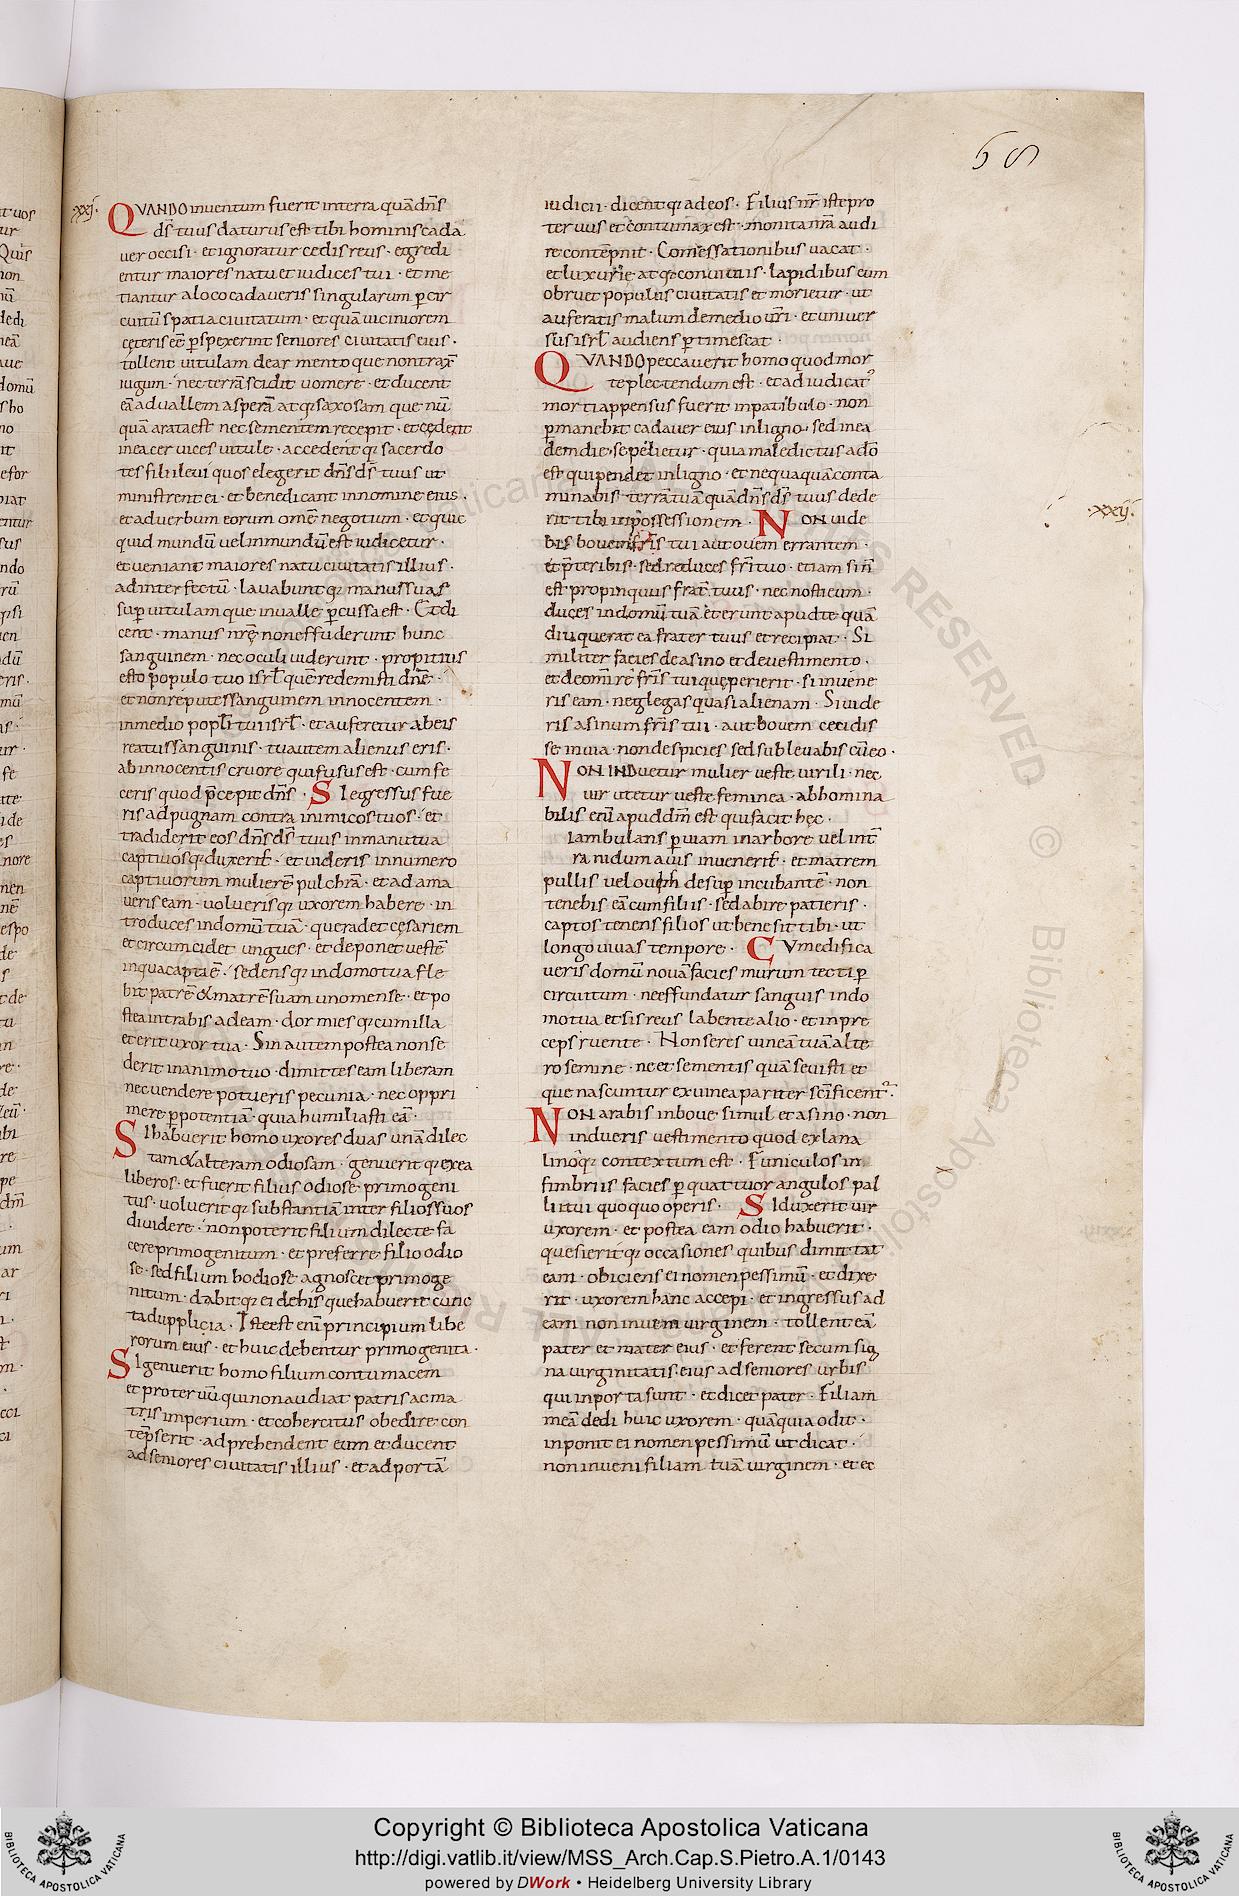 68
.xxi.
QUANDO inventum fuerit interra quā dn̄s
ds̄ tuus daturus est tibi hominis cada
ver occisi · et ignoratur cedis reus · egredi
entur maiores natu et iudices tui · et me
tiantur aloco cadaveris singularum p̱ cir
cuitū spatia civitatum · et quā viciniorem
ceteris eē p̱spexerint seniores civitatis eius ·
tollent vitulam de armento que non traxit
iugum · nec terrā scidit vomere · et ducent
eā ad vallem asperā atq; saxosam que nū
quā arata est nec sementem recepit · et cędent
in ea cervices vitule · accedent q; sacerdo
tes filii levi quos elegerit dn̄s ds̄ tuus ut
ministrent ei · et benedicant innomine eius ·
et ad verbum eorum om̄e negotium · et quic
quid mundū vel inmundū est iudicetur ·
et veniant maiores natu civitatis illius ·
ad interfectū · lavabunt q; manus suas
sup̱ vitulam que in valle p̱cussa est · Et di
cent · manus nr̄ę non effuderunt hunc
sanguinem · nec oculi viderunt · propitius
esto populo tuo isrl̄ quē redemisti dn̄e ·
et non reputes sanguinem innocentem ·
in medio popl̄i tui isrl̄ · et auferetur ab eis
reatus sanguinis · tu autem alienus eris ·
ab innocentis cruore qui fusus est · cum fe
ceris quod p̄cepit dn̄s · SI egressus fue
ris ad pugnam contra inimicos tuos · et
tradiderit eos dn̄s ds̄ tuus inmanu tua
captivos q; duxerit · et videris innumero
captivorum mulierē pulchrā · et adama
veris eam · volueris q; uxorem habere · in
troduces indomū tuā · que radet cęsariem
et circumcidet ungues · et deponet vestē
inqua capta ē · sedens q; indomo tua fle
bit patrē & matrē suam uno mense · et po
stea intrabis ad eam · dormies q; cum illa
et erit uxor tua · Sin autem postea non se
derit in animo tuo · dimittes eam liberam
nec vendere potueris pecunia · nec oppri
mere p̱ potentiā · quia humiliasti eā ·
SI habuerit homo uxores duas unā dilec
tam & alteram odiosam · genuerit q; ex ea
liberos · et fuerit filius odiose primogeni
tus · voluerit q; substantiā inter filios suos
dividere · non poterit filium dilecte fa
cere primogenitum · et preferre filio odio
se · sed filium hodiose agnoscet primoge
nitum · dabit q; ei de his que habuerit cunc
ta dupplicia · Iste est eni principium libe
rorum eius · et huic debentur primogenita ·
SI genuerit homo filium contumacem
et protervū qui non audiat patris ac ma
tris imperium · et cohercitus obedire con
tēpserit · adprehendent eum et ducent
ad seniores civitatis illius · et ad portā
iudicii · dicent q; ad eos · Filius nr̄ iste pro
tervus et contumax est · monita nr̄a audi
re contēpnit · Comessationibus vacat ·
et luxurie atq; conviviis · lapidibus eum
obruet populus civitatis et morietur · ut
auferatis malum de medio vr̄i · et univer
sus isrl̄ audiens p̱timescat ·
QUANDO peccaverit homo quod mor
te plectendum est · et adiudicat᷒
morti appensus fuerit inpatibulo · non
p̱manebit cadaver eius inligno · sed in ea
dem die sepelietur · quia maledictus a dō
est qui pendet inligno · et nequaquā conta
minabis terrā tuā quā dn̄s ds̄ tuus dede
rit tibi in possessionem · NON vide
.xxii.
bis bovem fr̄is tui aut ovem errantem ·
et p̄teribis · sed reduces fr̄i tuo · etiam si n̄
est propinquus frater tuus · nec nosti eum ·
duces indomū tuā et erunt apud te quā
diu querat ea frater tuus et recipiat · Si
militer facies de asino et de vestimento ·
et de om̄i re fr̄is tui quę perierit · si invene
ris eam · neglegas quasi alienam · Si vide
ris asinum fr̄is tui · aut bovem cecidis
se in via · non despicies sed sublevabis cū eo ·
NON INDuetur mulier veste virili · nec
vir utetur veste feminea · abhomina
bilis eni apud dm̄ est qui facit hęc ·
I ambulans p̱ viam in arbore vel int̄
ra nidum avis inveneris · et matrem
pullis vel ovis desup̱ incubantē · non
tenebis eā cum filiis · sed abire patieris ·
captos tenens filios ut bene sit tibi · ut
longo vivas tempore · CUM edifica
veris domū novā facies murum tecti p̱
circuitum · ne effundatur sanguis indo
mo tua et sis reus labente alio · et inpre
ceps ruente · Non seres vineā tuā alte
ro semine · ne et sementis quā sevisti et
que nascuntur ex vinea pariter scīficent᷒ ·
NON arabis in bove simul et asino · non
indueris vestimento quod ex lana
lino q; contextum est · Funiculos in
fimbriis facies p̱ quattuor angulos pal
lii tui quo quo operis · SI duxerit vir
uxorem · et postea eam odio habuerit ·
quesierit q; occasiones quibus dimittat
eam · obiciens ei nomen pessimū · et dixe
rit · uxorem hanc accepi · et ingressus ad
eam non inveni virginem · tollent eā
pater et mater eius · et ferent secum sig
na virginitatis eius ad seniores urbis
qui inporta sunt · et dicet pater · Filiam
meā dedi huic uxorem · quā quia odit ·
inponit ei nomen pessimū ut dicat ·
non inveni filiam tuā virginem · et ec
Copyright © Biblioteca Apostolica Vaticana
http://digi.vatlib.it/view/MSS_Arch.Cap.S.Pietro.A.1/0143
powered by DWork • Heidelberg University Library